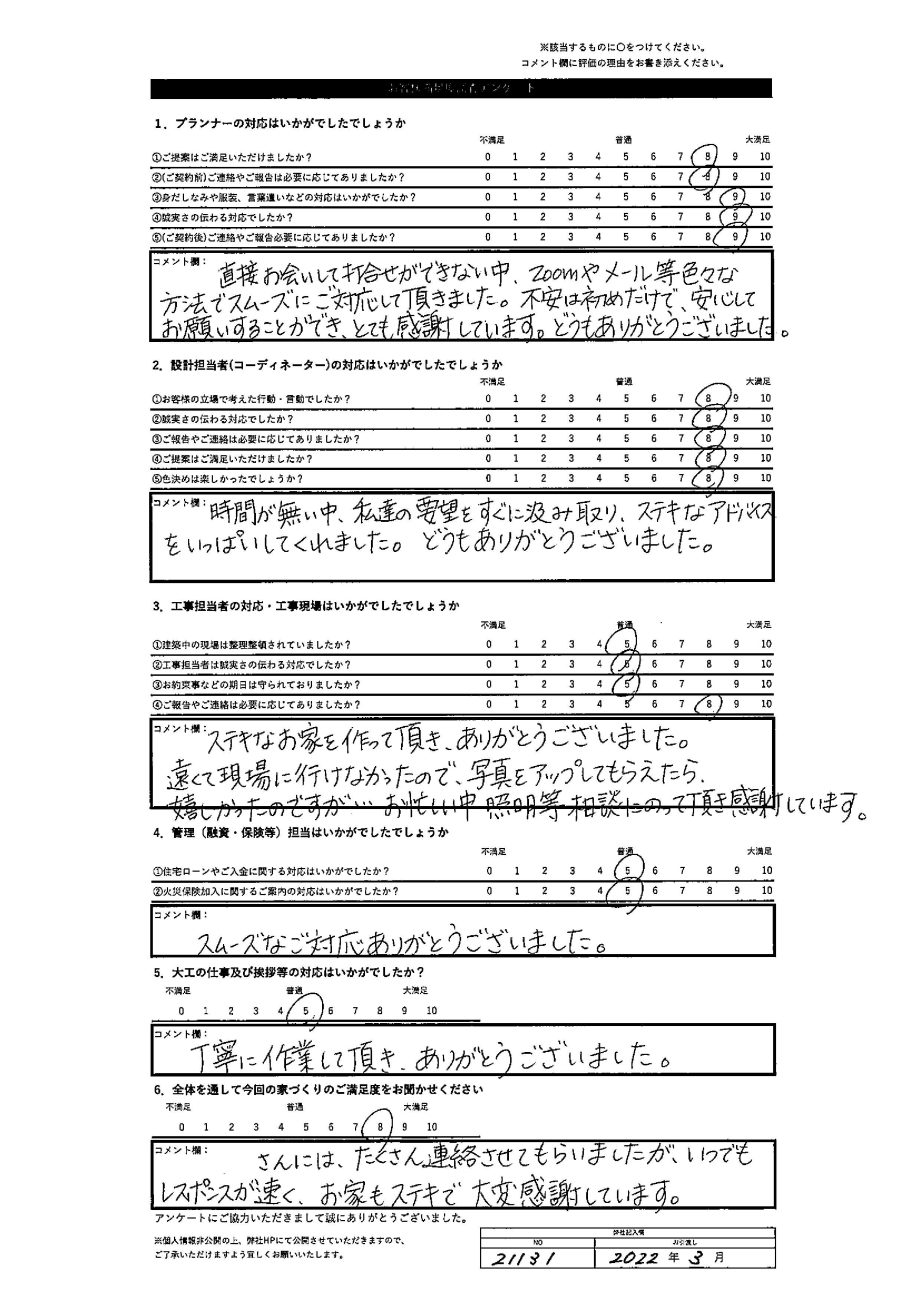 ※該当するものに〇をつけてください。
コメント欄に評価の理由をお書き添えください。
1．プランナーの対応はいかがでしたでしょうか
不満足 普通 大満足
①ご提案はご満足いただけましたか？ 0 1 2 3 4 5 6 7 8 9 10
②(ご契約前)ご連絡やご報告は必要に応じてありましたか？ 0 1 2 3 4 5 6 7 8 9 10
③身だしなみや服装、言葉遣いなどの対応はいかがでしたか？ 0 1 2 3 4 5 6 7 8 9 10
④誠実さの伝わる対応でしたか？ 0 1 2 3 4 5 6 7 8 9 10
⑤(ご契約後)ご連絡やご報告必要に応じてありましたか？ 0 1 2 3 4 5 6 7 8 9 10
コメント欄：
直接お会いして打合せができない中、Zoomやメール等色々な
方法でスムーズにご対応して頂きました。不安は初めだけで、安心して
お願いすることができ、とても感謝しています。どうもありがとうございました。
2．設計担当者(コーディネーター)の対応はいかがでしたでしょうか
不満足 普通 大満足
①お客様の立場で考えた行動・言動でしたか？ 0 1 2 3 4 5 6 7 8 9 10
②誠実さの伝わる対応でしたか？ 0 1 2 3 4 5 6 7 8 9 10
③ご報告やご連絡は必要に応じてありましたか？ 0 1 2 3 4 5 6 7 8 9 10
④ご提案はご満足いただけましたか？ 0 1 2 3 4 5 6 7 8 9 10
⑤色決めは楽しかったでしょうか？ 0 1 2 3 4 5 6 7 8 9 10
コメント欄：
時間が無い中、私達の要望をすぐに汲み取り、ステキなアドバイス
をいっぱいしてくれました。どうもありがとうございました。
3．工事担当者の対応・工事現場はいかがでしたでしょうか
不満足 普通 大満足
①建築中の現場は整理整頓されていましたか？ 0 1 2 3 4 5 6 7 8 9 10
②工事担当者は誠実さの伝わる対応でしたか？ 0 1 2 3 4 5 6 7 8 9 10
③お約束事などの期日は守られておりましたか？ 0 1 2 3 4 5 6 7 8 9 10
④ご報告やご連絡は必要に応じてありましたか？ 0 1 2 3 4 5 6 7 8 9 10
コメント欄：
ステキなお家を作って頂き、ありがとうございました。
遠くて現場に行けなかったので、写真をアップしてもらえたら、
嬉しかったのですが… お忙しい中 照明等 相談にのって頂き感謝しています。
4．管理（融資・保険等）担当はいかがでしたでしょうか
不満足 普通 大満足
①住宅ローンやご入金に関する対応はいかがでしたか？ 0 1 2 3 4 5 6 7 8 9 10
②火災保険加入に関するご案内の対応はいかがでしたか？ 0 1 2 3 4 5 6 7 8 9 10
コメント欄：
スムーズなご対応ありがとうございました。
5．大工の仕事及び挨拶等の対応はいかがでしたか？
不満足 普通 大満足
0 1 2 3 4 5 6 7 8 9 10
コメント欄：
丁寧に作業して頂き、ありがとうございました。
6．全体を通して今回の家づくりのご満足度をお聞かせください
不満足 普通 大満足
0 1 2 3 4 5 6 7 8 9 10
コメント欄：
さんには、たくさん連絡させてもらいましたが、いつでも
レスポンスが速く、お家もステキで大変感謝しています。
アンケートにご協力いただきまして誠にありがとうございました。
※個人情報非公開の上、弊社HPにて公開させていただきますので、
ご了承いただけますよう宜しくお願いいたします。
弊社記入欄
NO お引渡し
21131 2022 年 3 月